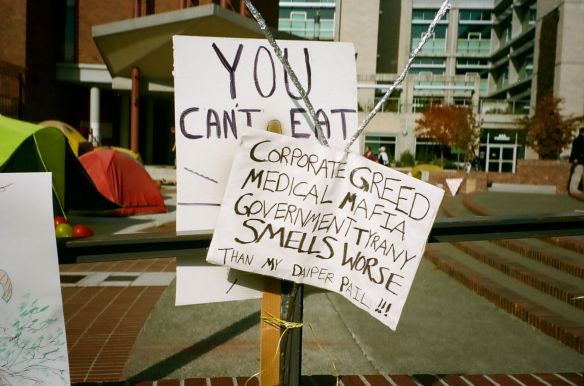 YOU
CAN'T EAT
CORPORATE GREED
MEDICAL MAFIA
GOVERNMENT TYRANY
SMELLS WORSE
THAN MY DAIPER PAIL !!!